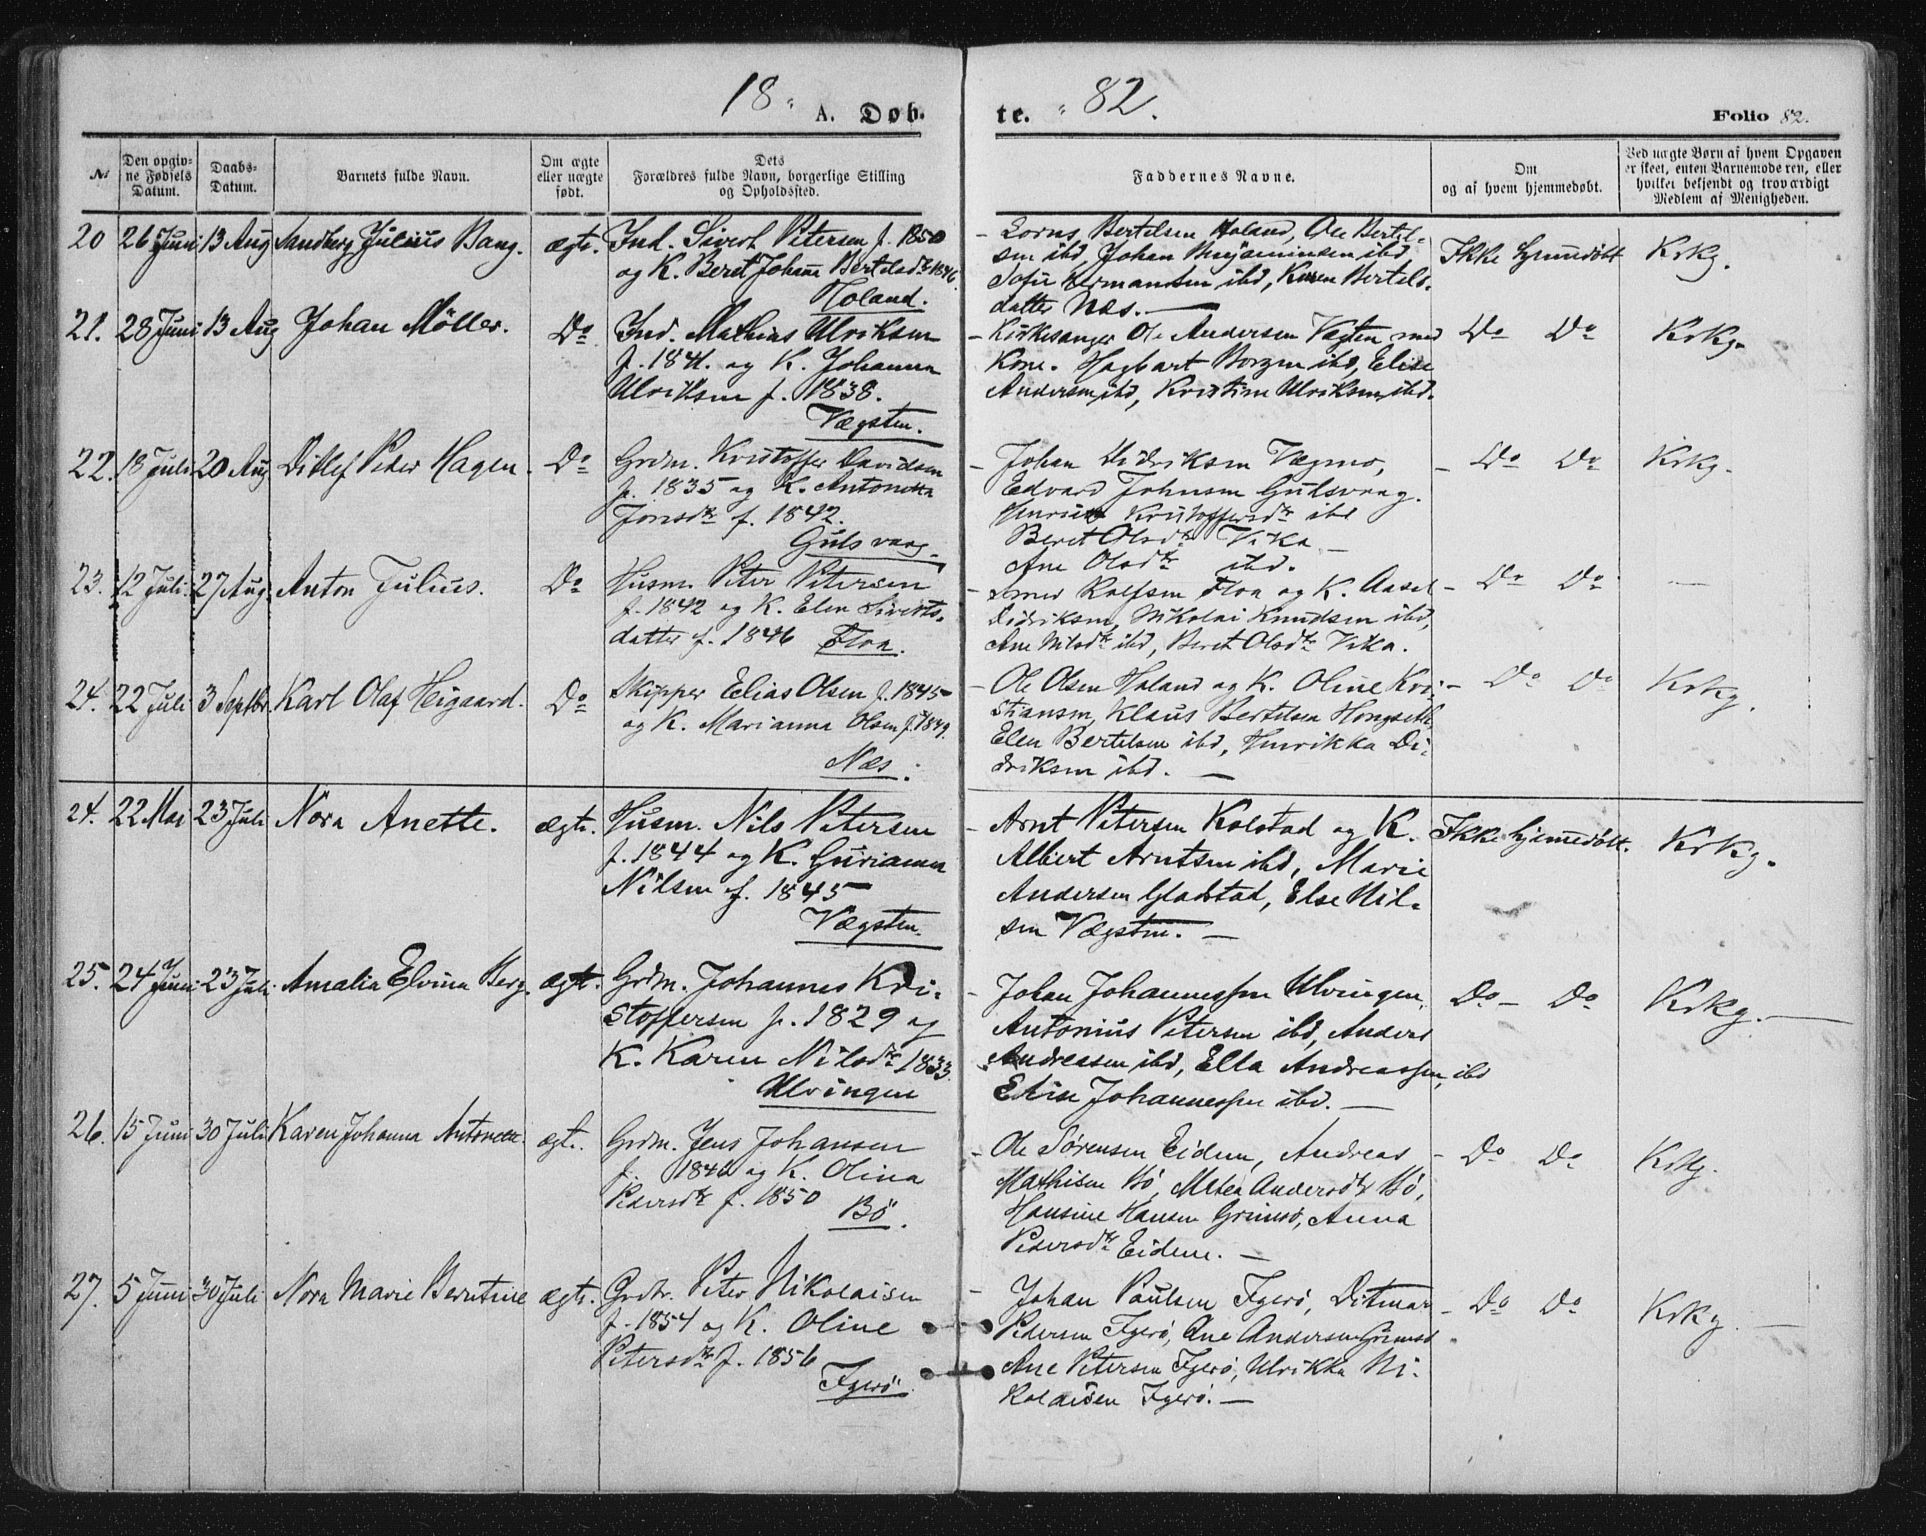 18 " A. Døb-
te. " 82.
Folio 82.
No
Den opgiv-
ne Fødsels
Datum.
Daabs-
Datum.
Barnets fulde Navn.
Om ægte
eller uægte
født.
Dets
Forældres fulde Navn, borgerlige Stilling
og Opholdssted.
Faddernes Navne.
Om
og af hvem hjemmedøbt.
Ved uægte Børn af hvem Opgaven
er skeet, enten Barnemoderen, eller
hvilket bekjendt og troværdigt
Medlem af Menigheden.
20 26 Juni 13 Aug Sandberg Julius Bang. ægte.
Ind. Sivert Petersen f. 1850
og K. Beret Johanne Bertelsdtr 1846.
Holand.
Bertelsen Holand, Ole Bertel-
sen ibd, Johan Benjaminsen ibd
Sofie Hermansen ibd, Karen Bertels-
datter Næs. —
Ikke hjemmedøbt Krkg.
21. 28 Juni 13 Aug Johan Möller. Do
Ind. Mathias Ulriksen
f. 1841. og K. Johanna
Ulriksen f. 1838.
Vægsten.
Kirkesanger Ole Andersen Vægten med
Kone. Hagbart Borgen ibd, Elise
Andersen ibd, Kristine Ulriksen ibd.
Do Do Krkg.
22. 18 Juli 20 Aug Ditlef Peder Hagen. Do
Grdm. Kristoffer Davidsen
f. 1835 og K. Antonetta
Jonsdtr f. 1842.
Gulsvaag.
Johan Didriksen Vægmo,
Edvard Johnsen Gulsvaag.
Kristoffersdtr ibd
Beret Olsdtr Vika —
Ane Olsdtr ibd.
Do Do Krkg.
23. 12 Juli 27 Aug. Anton Julius. Do
Husm. Peter Petersen
f. 1842 og K. Elen Siverts-
datter f. 1846 Floa.
Rolfsen Floa og K. Aasel
Didriksen, Nikolai Knudsen ibd,
Ane Nilsdtr ibd, Beret Olsdtr Vika.
Do Do —
24. 22 Juli 3 Septbr. Karl Olaf Heigaard. Do
Skipper Elias Olsen f. 1845
og K. Marianna Olsen f. 1849.
Næs.
Ole Olsen Holand og K. Oline Kri-
stiansen, Klaus Bertelsen Hongseth
Elen Bertelsen ibd, Henrikka Di-
driksen ibd. —
Do Do Krkg.
24. 22 Mai 23 Juli Nora Anette. ægte.
Husm. Nils Petersen
f. 1844 og K. Gurianna
Nilsen f. 1845
Vægsten.
Arnt Petersen Kolstad og K.
Albert Arntsen ibd, Marie
Andersen Gladstad, Else Nil-
sen Vægsten. —
Ikke hjemmedøbt. Krkg.
25. 24 Juni 23 Juli. Amalia Elvina Berg. ægt.
Grdm. Johannes Kri-
stoffersen f. 1829 og
K. Karen Nilsdtr 1833.
Ulvingen
Johan Johannessen Ulvingen,
Antonius Petersen ibd, Anders
Andreasen ibd, Ella Andreassen, ibd
Elise Johannessen ibd. —
Do — Do Krkg. —
26. 15 Juni 30 Juli Karen Johanna Antonette. ægt.
Grdm. Jens Johansen
f. 1846 og K. Olina
Pedersdtr f. 1850 Bö.
Ole Sørensen Eidem, Andreas
Mathisen Bö, Metea Andersdtr Bö,
Hansine Hansen Grimsö, Anna
Pedersdtr Eidem. —
Do Do Krkg.
27. 5 Juni 30 Juli Nora Marie Berntine ægte.
Grdbr. Peter Nikolaisen
f. 1854 og K. Oline
Petersdtr f. 1856
Igerö.
Johan Paulsen Igerö, Ditmar
Pedersen Igerö, Ane Andersen Grimsö
Ane Petersen Igerö, Ulrikka Ni-
kolaisen Igerö. —
Do Do Krkg. —